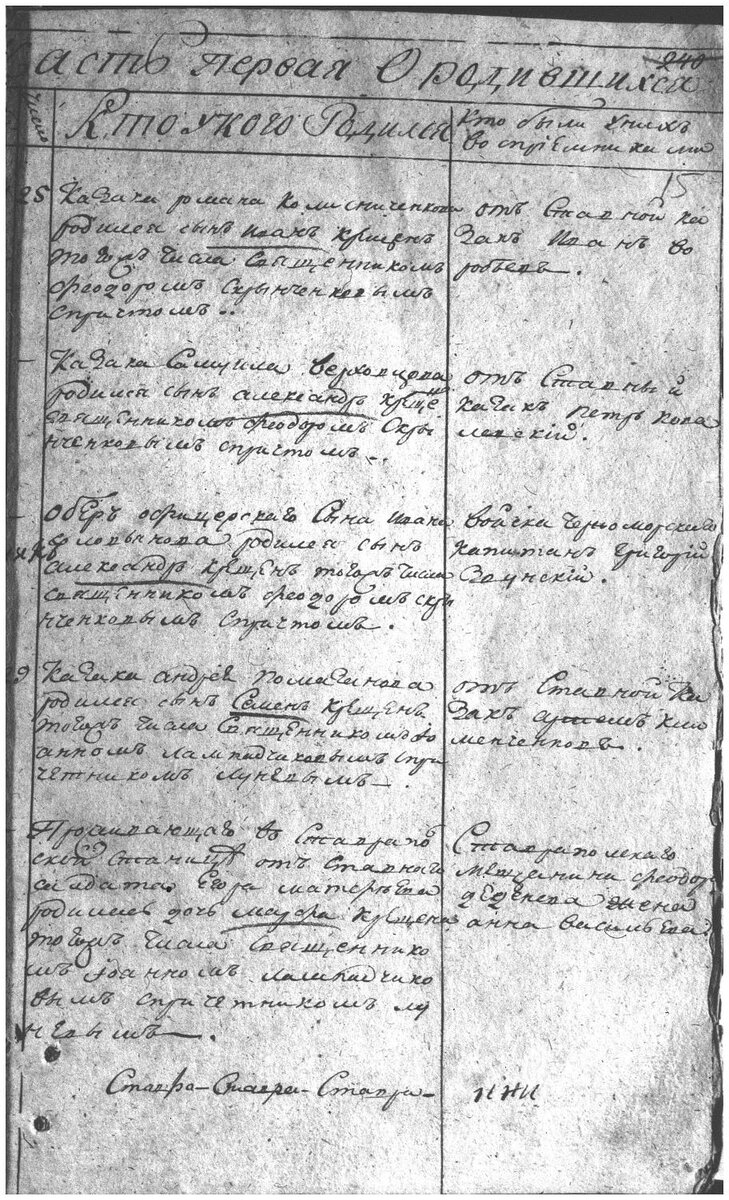 240
Часть первая О родившихся
Число
Кто У кого Родился
Кто были У нихъ
восприемниками
15
25
Казачи романа Колисниченкова
родился сынъ иванъ крещенъ
тогожъ числа Священникомъ
феодоромъ Скрынченковымъ
спричтомъ..
отъ Ставной ка
закъ Иванъ во
робьевъ.
Казака Самуила верховцова
родился сынъ александръ креще
священникомъ феодоромъ Скры
нченковымъ спричтомъ.
отъ Ставный
казакъ петръ кова
левский.
Оберъ офицерскаго Сына ивана
родился сынъ
александръ крещенъ тогожъ числа
священникомъ феодоромъ скры
нченковымъ спричтомъ.
войска черноморскаго
капитанъ григорий
9
Казака андрея помазанова
родился сынъ Семенъ крещенъ
тогожъ числа Священникомъ Іо
анномъ лампадчиковымъ спри
четникомъ луневымъ
отъ Ставной Ка
закъ артемъ кли
менченковъ.
Проживающаго въ Ставропол
ской Станицѣ отъ Ставнаго
салдата Егора матерьева
родилась дочь мавра крещена
тогожъ числа Священнико
мъ Іоанномъ лампадчико
вымъ спричетникомъ лу
невымъ.
Ставрополскаго
мещанина феодора
деденева жена
анна васильева
Ставро- Ставро- Ставро-